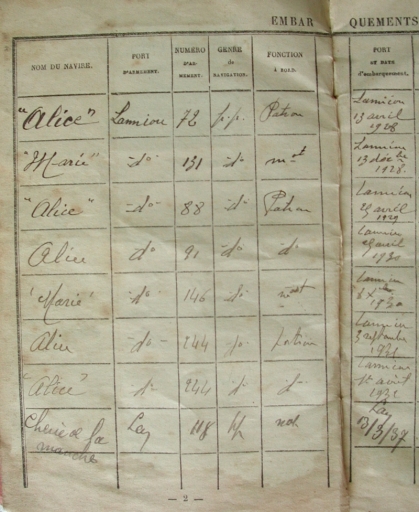 EMBARQUEMENTS
NOM DU NAVIRE. PORT D'ARMEMENT. NUMÉRO D'ARMEMENT. GENRE de NAVIGATION. FONCTION à BORD. PORT ET DATE d'embarquement,
"Alice" Lannion 72 p.p. Patron Lannion 13 avril 1928
"Marie" do 131 do mot Lannion 13 déc bre 1928
"Alice" do 88 do Patron Lannion 29 avril 1929
Alice do 91 do do Lannion avril 1930
"Marie" do 146 do mot Lannion 1930
Alice do 244 Patron Lannion 3 septembre 1931
"Alice" d 244 d d Lannion août 1931
de la manche 118 3/3/37
— 2 —